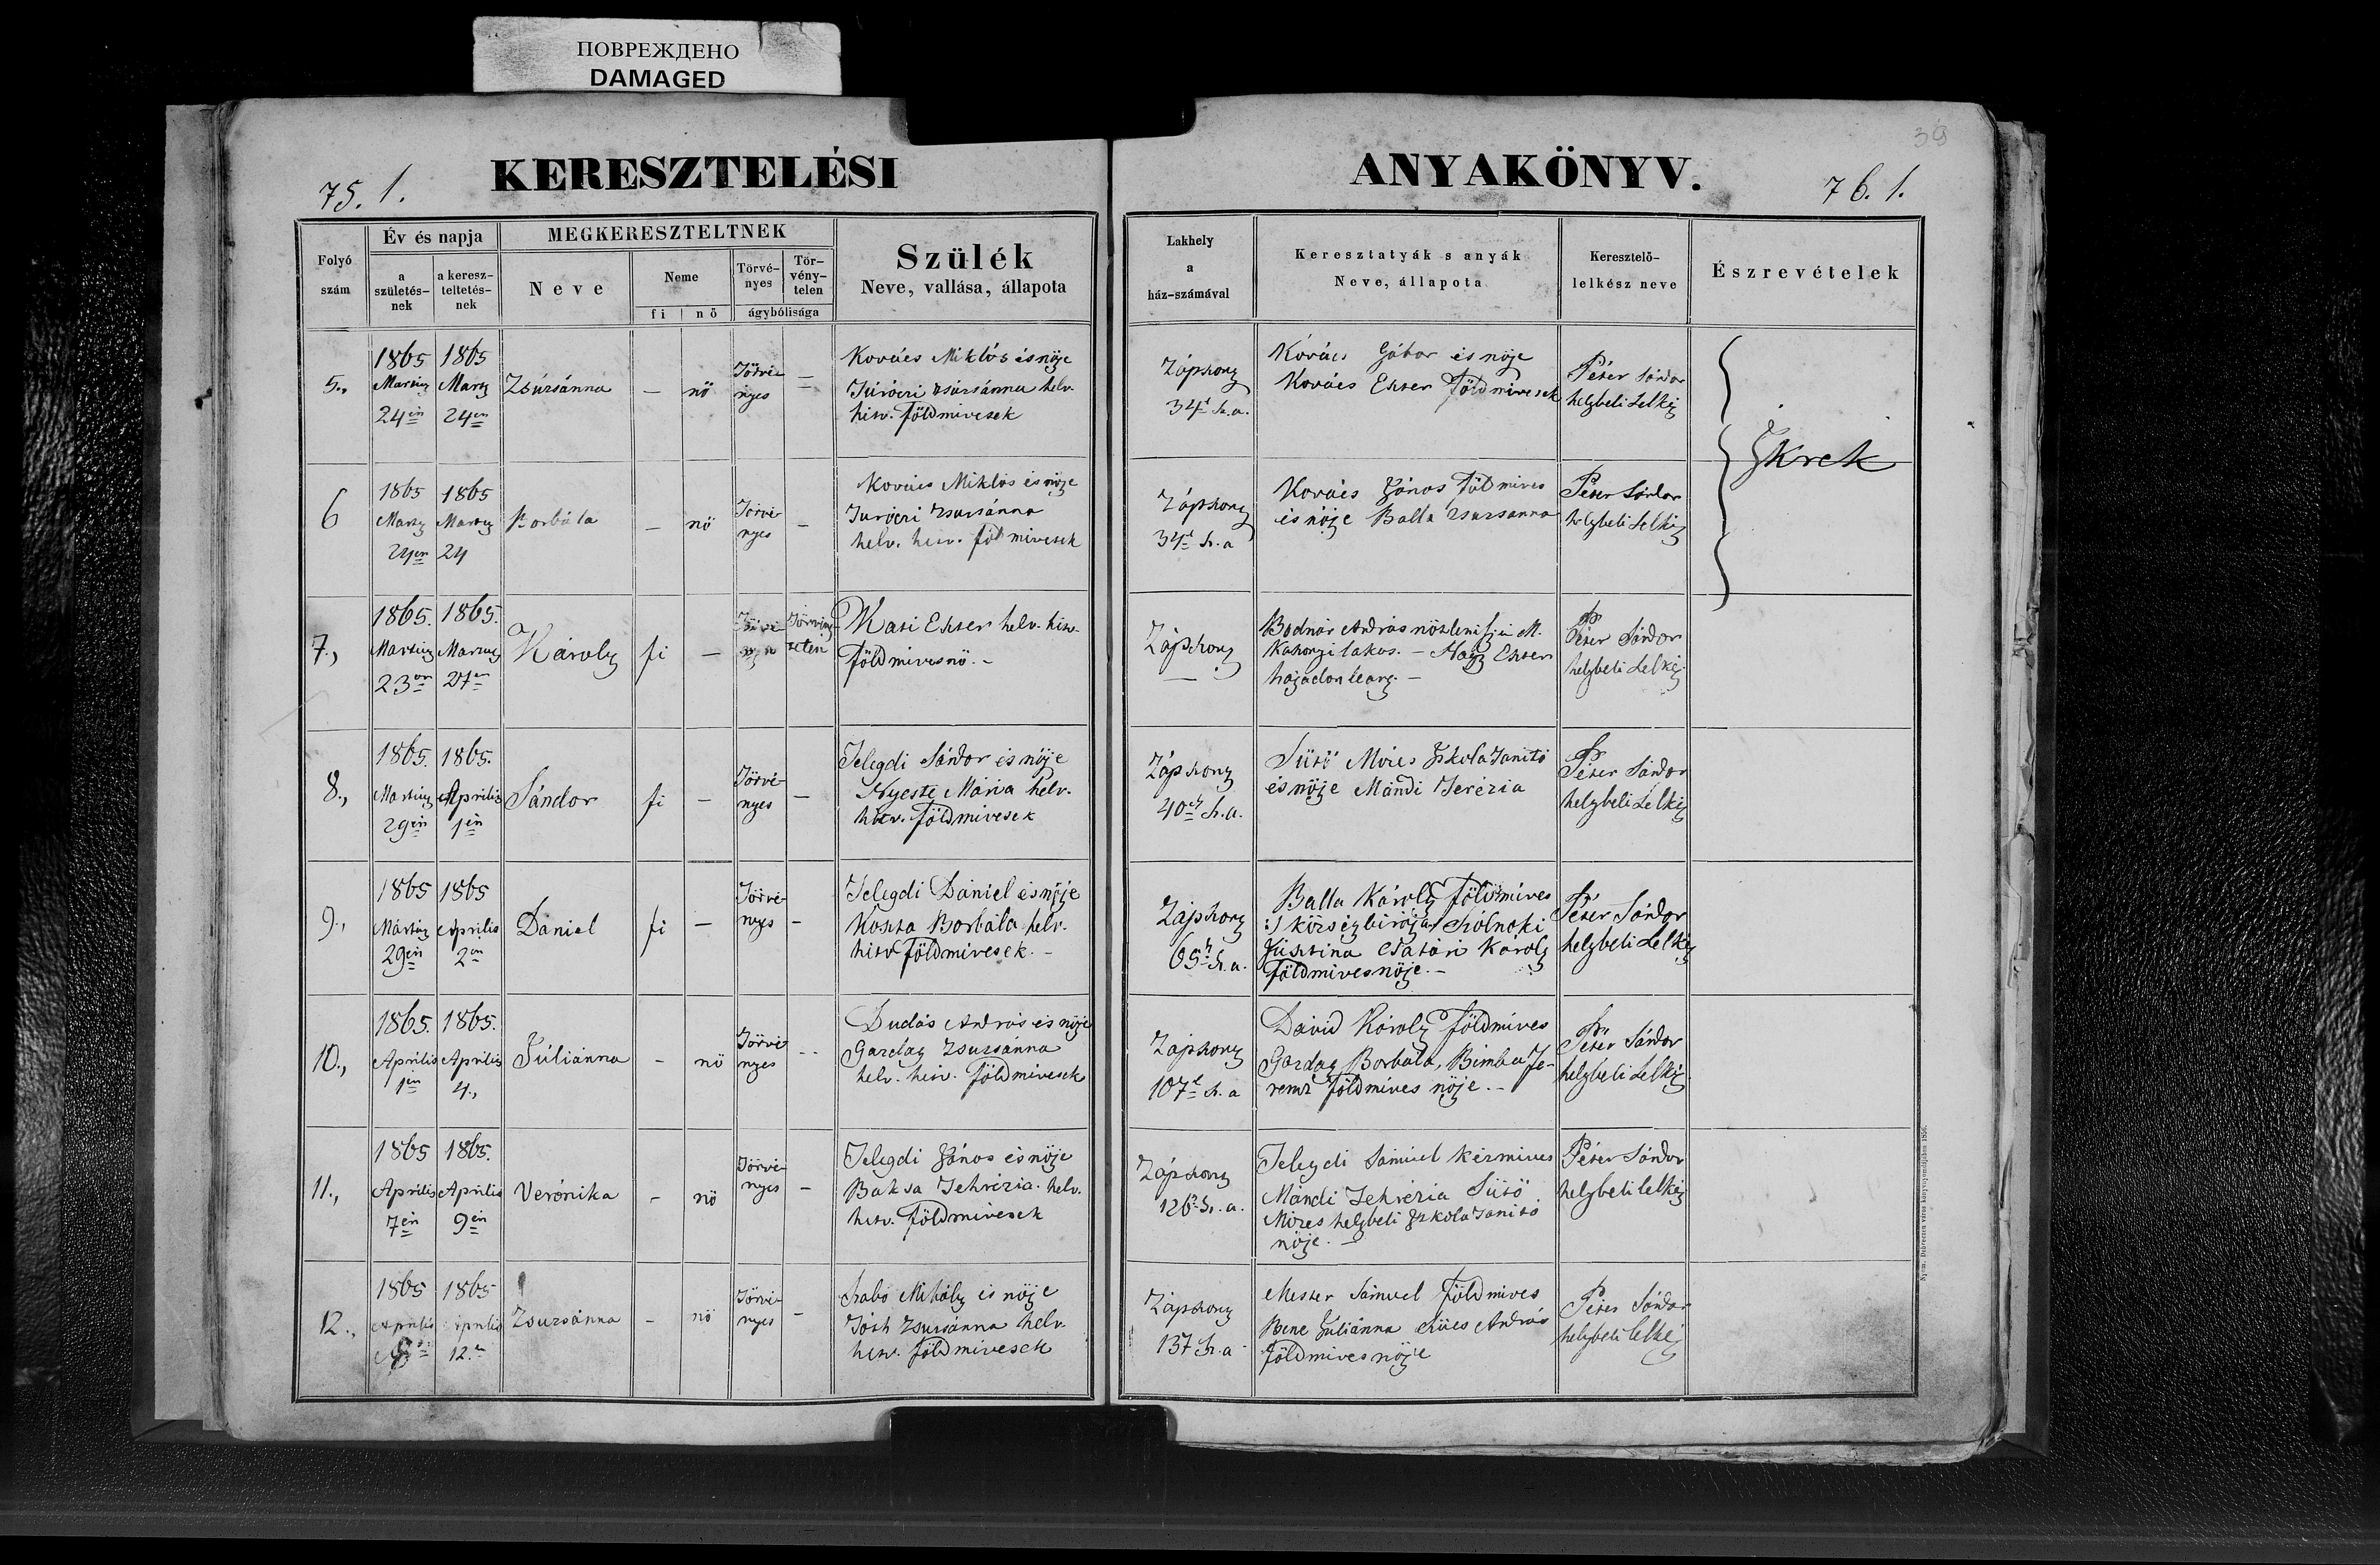 ПОВРЕЖДЕНО
DAMAGED
39
75. 1.
KERESZTELÉSI
ANYAKÖNYV.
76. 1.
Folyó szám
Év és napja
a születés-nek
a keresz-teltetés-nek
MEGKERESZTELTNEK
Neve
Neme
fi
nö
Törvé-nyes
Tör-vény-telen
ágybólisága
Szülék
Neve, vallása, állapota
Lakhely
a
ház-számával
Keresztatyák s anyák
Neve, állapota
Keresztelö-
lelkész neve
Észrevételek
5.,
1865
Martius
24én
1865
Martz
24én
Zsúzsánna
—
nö
Törvé-
nyes
—
Kovács Miklós és nöje
Zsúzsánna helv.
hitv. földmivesek
Záphony
34 h.a.
Kovács Gábor és nöje
Kovács Eszter földmivesek
Péter Sándor
helybeli Lelkész
Ikrek
6
1865
Martz
24én
1865
Martz
24
Borbála
—
nö
Törvé-
nyes
—
Kovács Miklós és nöje
Zsuzsánna
helv. hitv. földmivesek
Záphony
34 h.a
Kovács János földmives
és nöje Balla Zsuzsanna
Péter Sándor
helybeli Lelkész
7.,
1865.
Martius
23án
1865.
Martius
27én
Károly
fi
—
Kati Eszter helv. hitv.
földmivesnö. —
Záphony
—
Bodnár András nöstemfjú M.
lakos. — Nagy Eszter
hajadon leany. —
Péter Sándor
helybeli Lelkész
8.,
1865.
Martius
29én
1865.
Aprilis
1én
Sándor
fi
—
Törvé-
nyes
—
Telegdi Sándor és nöje
Nyeste Mária helv.
hitv. földmivesek
Záphony
40 h.a.
Sütö Móres Iskola Tanitó
és nöje Mándi Terézia
Péter Sándor
helybeli Lelkész
9.,
1865
Mártius
29én
1865
Aprilis
2án
Dániel
fi
—
Törvé-
nyes
—
Telegdi Dániel és nöje
Koszta Borbála helv.
hitv földmivesek. —
Záphony
65 h.a.
Balla Károly földmives
Szólnoki
Jusztina Károly
földmives nöje. —
Péter Sándor
helybeli Lelkész
10.,
1865.
Aprilis
1én
1865.
Aprilis
4.,
Júliánna
—
nö
Törvé-
nyes
—
Dudás András és nöje
Gazdag Zsuzsánna
helv. hitv. földmivesek
Záphony
107 h.a
Dávid Károly földmives
Gazdag Borbála, Bimba Fe-
rentz földmives nöje. —
Péter Sándor
helybeli Lelkész
11.,
1865
Aprilis
7én
1865.
Aprilis
9én
Verónika
—
nö
Törvé-
nyes
—
Telegdi János és nöje
Baksa Tehrézia. helv.
hitv. földmivesek
Záphony
126 h.a.
Telegdi Sámuel kézmives
Mándi Tehrézia Sütö
Móres helybeli Iskola Tanitó
nöje. —
Péter Sándor
helybeli lelkész
12.,
1865
Aprilis
8
1865
Aprilis
12.
Zsuzsánna
—
nö
Törvé-
nyes
—
Szabó Mihály és nöje
Tóth Zsuzsánna helv.
hitv. földmivesek
Záphony
137 h.a
Mester Sámuel földmives
Bene Juliánna Szücs András
földmives nöje
Péter Sándor
helybeli lelkész